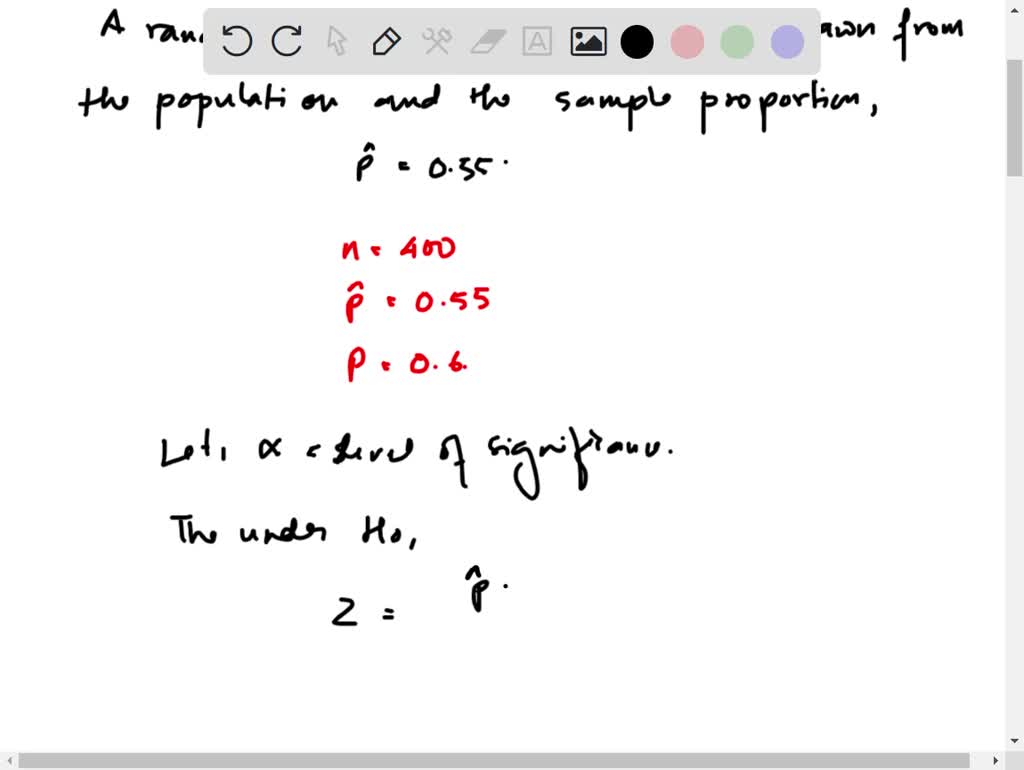 A ran awn from
the population and the sample proportion,
p̂ = 0.55.
n = 400
p̂ = 0.55
p = 0.6.
Let, α = level of significance.
The under H₀,
Z = p̂